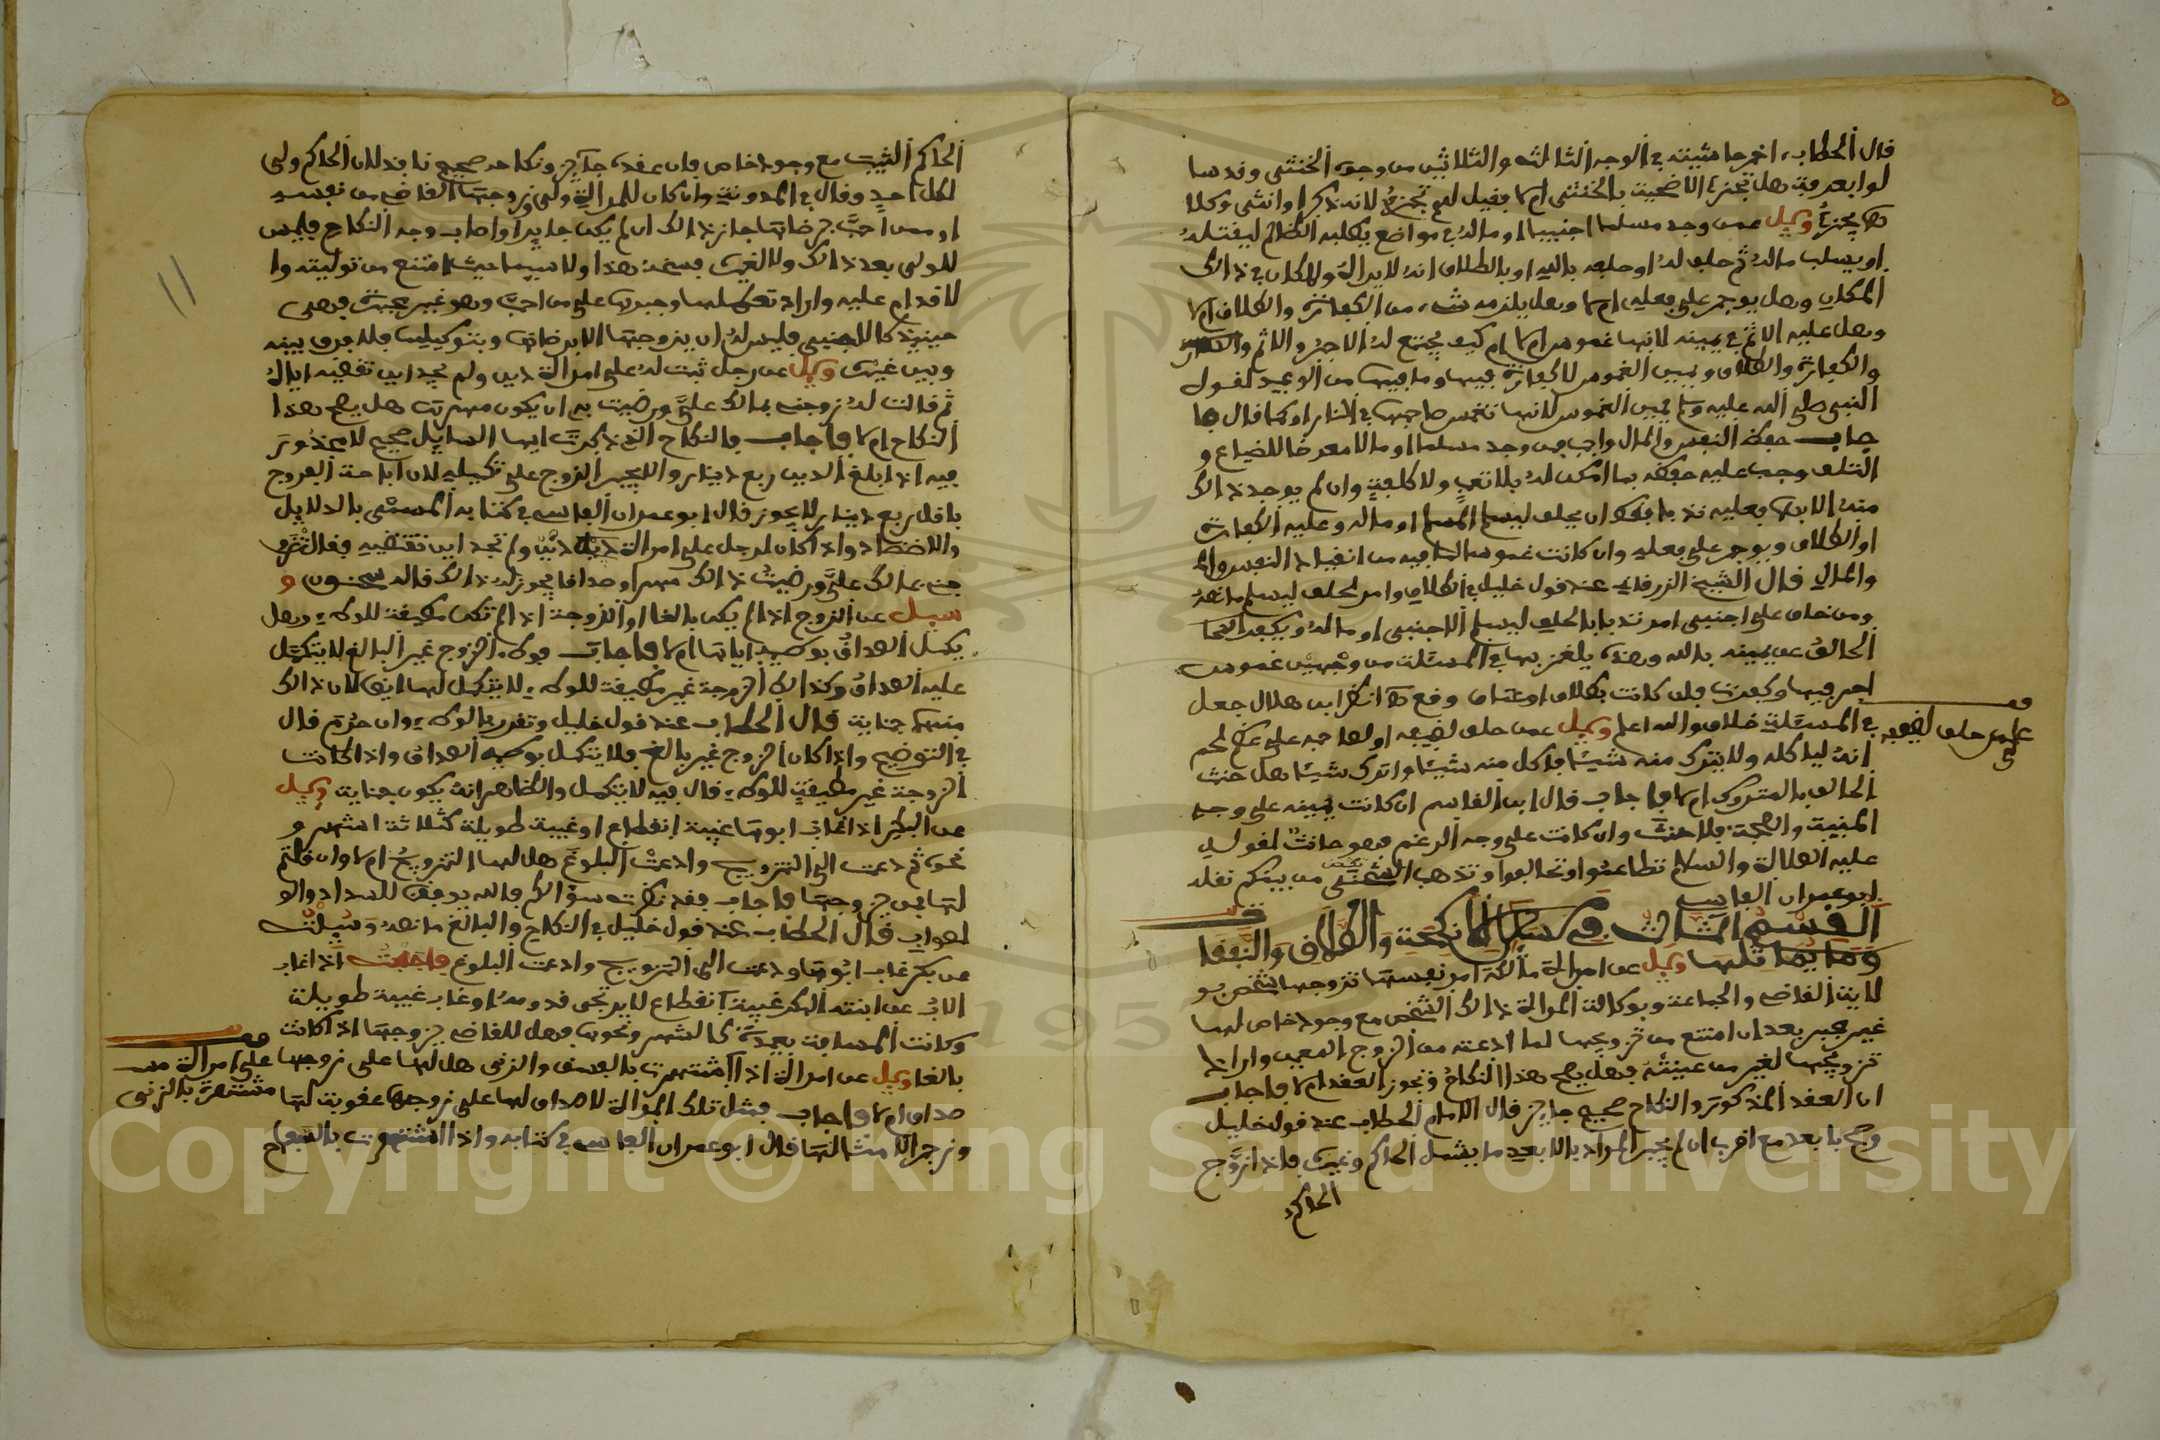 قال الحطاب اخرجا مثيته في الوجه الثالثة والثلاثين من وجوه الخنثى وقد سا
لوا بعرفة هل تجزئ الاضحية بالخنثى ام لا فقيل لهم تجزئ لانه ذكرا وانثى وكلا
هما يجزئ وسيل عمن وجد مسلما اجنبيا او ماله في مواضع يطلبه الظالم ليقتله
او يسلب ماله ثم حلف له او حلفه بالله او بالطلاق انه لا يراه ولا كان في ذالك
المكان وهل يوجر على فعله ام لا وهل يلزمه شيء من الكفارة والطلاق ام لا
وهل عليه الاثم في يمينه لانها غموس ام لا ام كيف يجتمع له الاجر والاثم
والكفارة والطلاق ويمين الغموس لا كفارة فيها وما فيها من الوعيد لقول
النبي صلى الله عليه وسلم يمين الغموس لانها تغمس صاحبها في النار او كما قال فا
جاب حفظ النفس والمال واجب فمن وجد مسلما او مالا معرضا للضياع و
التلف وجب عليه حفظه بما امكن له بلا تعب ولا كلفة وان لم يوجد ذالك
منه الا بها فعليه ندبا فقط ان يحلف ليسلم المسلم او ماله وعليه الكفارة
او الطلاق ويوجر على فعله وان كانت غموسا لما فيه من انقياد النفس والم
والمال قال الشيخ الزرقاني عند قول خليل في الطلاق وامر لحلف ليسلم ما نصه
ومن خاف على اجنبي امر ندبا بالحلف ليسلم الاجنبي او ماله ويكفر
الحالف عن يمينه بالله وهذه يلغز بها في المسئلة من وجهين غموس
اجر فيها وكفرت فلن كانت بطلاق او عتاق وقع انظر ابن هلال جعل
في المسئلة خلاف والله اعلم وسيل عمن حلف لضيفه او لصاحبه على عظم لحم
انه لياكله ولا يترك منه شيئا فاكل منه شيئا واترك شيئا هل حنث
الحالف بالمتروك ام لا فاجاب قال ابن القاسم ان كانت يمينه على وجه
المنية والمحبة فلا حنث وان كانت على وجه الرغم فهو حانث لقوله
عليه الصلاة والسلام تطاعموا وتحالفوا وتذهب الشحناء من بينكم نقله
ابو عمران الفاسي
القسم الثالث في مسائل الانكحة والطلاق والنفقا
وما يماثلها وسيل عن امراة مالكة امر نفسها تزوجها شخص بو
لاية القاضي والجماعة وبوكالة المراة ذالك الشخص مع وجود خاص لها
غير مجبر بعد ان امتنع من تزويجها لما ادعته من الزوج المعين واراد
تزويجها لغير من عينته فهل يصح هذا النكاح وتجوز العقد ام لا فاجاب
ان العقد المذكور والنكاح صحيح جايز قال الامام الحطاب عند قول خليل
وصح بابعد مع اقرب ان لم يجبر المراد بالابعد ما يشمل الحاكم وغيره فاذا زوج
الحاكم
على من حلف لضيفه
الحاكم الثيب مع وجود خاص فان عقده جايز ونكاحه صحيح نافذ لان الحاكم ولي
لكل احد وقال في المدونة وان كان للمراة ولي فزوجها القاضي من نفسه
او ممن احب برضاها جاز ذالك ان لم يكن جايرا واصاب وجه النكاح فليس
للولي بعد ذالك ولا لغيره فسخ هذا ولا سيما حيث امتنع من توليته وا
لاقدام عليه واراد تعضلها وجبرها على من احب وهو غير مجبر فهي
حينيذ كالاجنبي فليس له ان يزوجها الا برضاها وبتوكيلها فلا فرق بينه
وبين غيره وسيل عن رجل ثبت له على امراة دين ولم تجد اين تقضيه اياه
ثم قالت له زوجني بما لك علي ورضيت به ان يكون مهرك هل يصح هذا
النكاح ام لا فاجاب فالنكاح الذي ذكرت ايها السايل صحيح لا محذور
فيه اذا بلغ الدين ربع دينار والا يجبر الزوج على تكميله لان اباحة الفروج
باقل ربع دينار لا يجوز قال ابو عمران الفاسي في كتابه المسمى بالدلايل
والاضداد واذا كان لرجل على امراة دين ولم تجد اين تقضيه فقالت تزو
جني بما لك علي ورضيت ذالك مهرا وصداقا يجوز له ذالك قاله سحنون و
سيل عن الزوج اذا لم يكن بالغا او الزوجة اذا لم تكن مطيقة للوطء وهل
يكمل الصداق بوطئه اياها ام لا فاجاب فوطء الزوج غير البالغ لا يتكمل
عليه الصداق وكذالك الزوجة غير مطيقة للوطء لا يتكمل لها ايضا لان ذالك
منه جناية قال الحطاب عند قول خليل وتقرر بالوطء وان حرم قال
في التوضيح واذا كان الزوج غير بالغ فلا يتكمل بوطئه الصداق واذا كانت
الزوجة غير مطيقة للوطء قال فيه لا يتكمل والظاهر انه يكون جناية وسيل
عن البكر اذا غاب ابوها غيبة انقطاع او غيبة طويلة كثلاثة اشهر و
نحوه ثم دعت الى التزويج وادعت البلوغ هل لها التزويج ام لا وان قلتم
لها من يزوجها فاجاب فقد نظرت سؤالكم فالله يوفق للسداد والا
لصواب قال الحطاب عند قول خليل في النكاح والبالغ ما نصه وسيلت
عن بكر غاب ابوها ودعت الى التزويج وادعت البلوغ فاجبت اذا غاب
الاب عن ابنته البكر غيبة انقطاع لا يرتجى قدومه او غاب غيبة طويلة
وكانت المسافة بعيدة كالشهر ونحوها فهل للقاضي يزوجها اذا كانت
بالغا وسيل عن امراة اذا اشتهرت بالفسق والزنى هل لها على زوجها
صداق ام لا فاجاب فمثل تلك المراة لا صداق لها على زوجها عقوبة لها
وزجر الامثالها قال ابو عمران الفاسي في كتابه واذا اشتهرت بالسفاح
على امراة من
مشتهرة بالزنى
11
Copyright © King Saud University
195